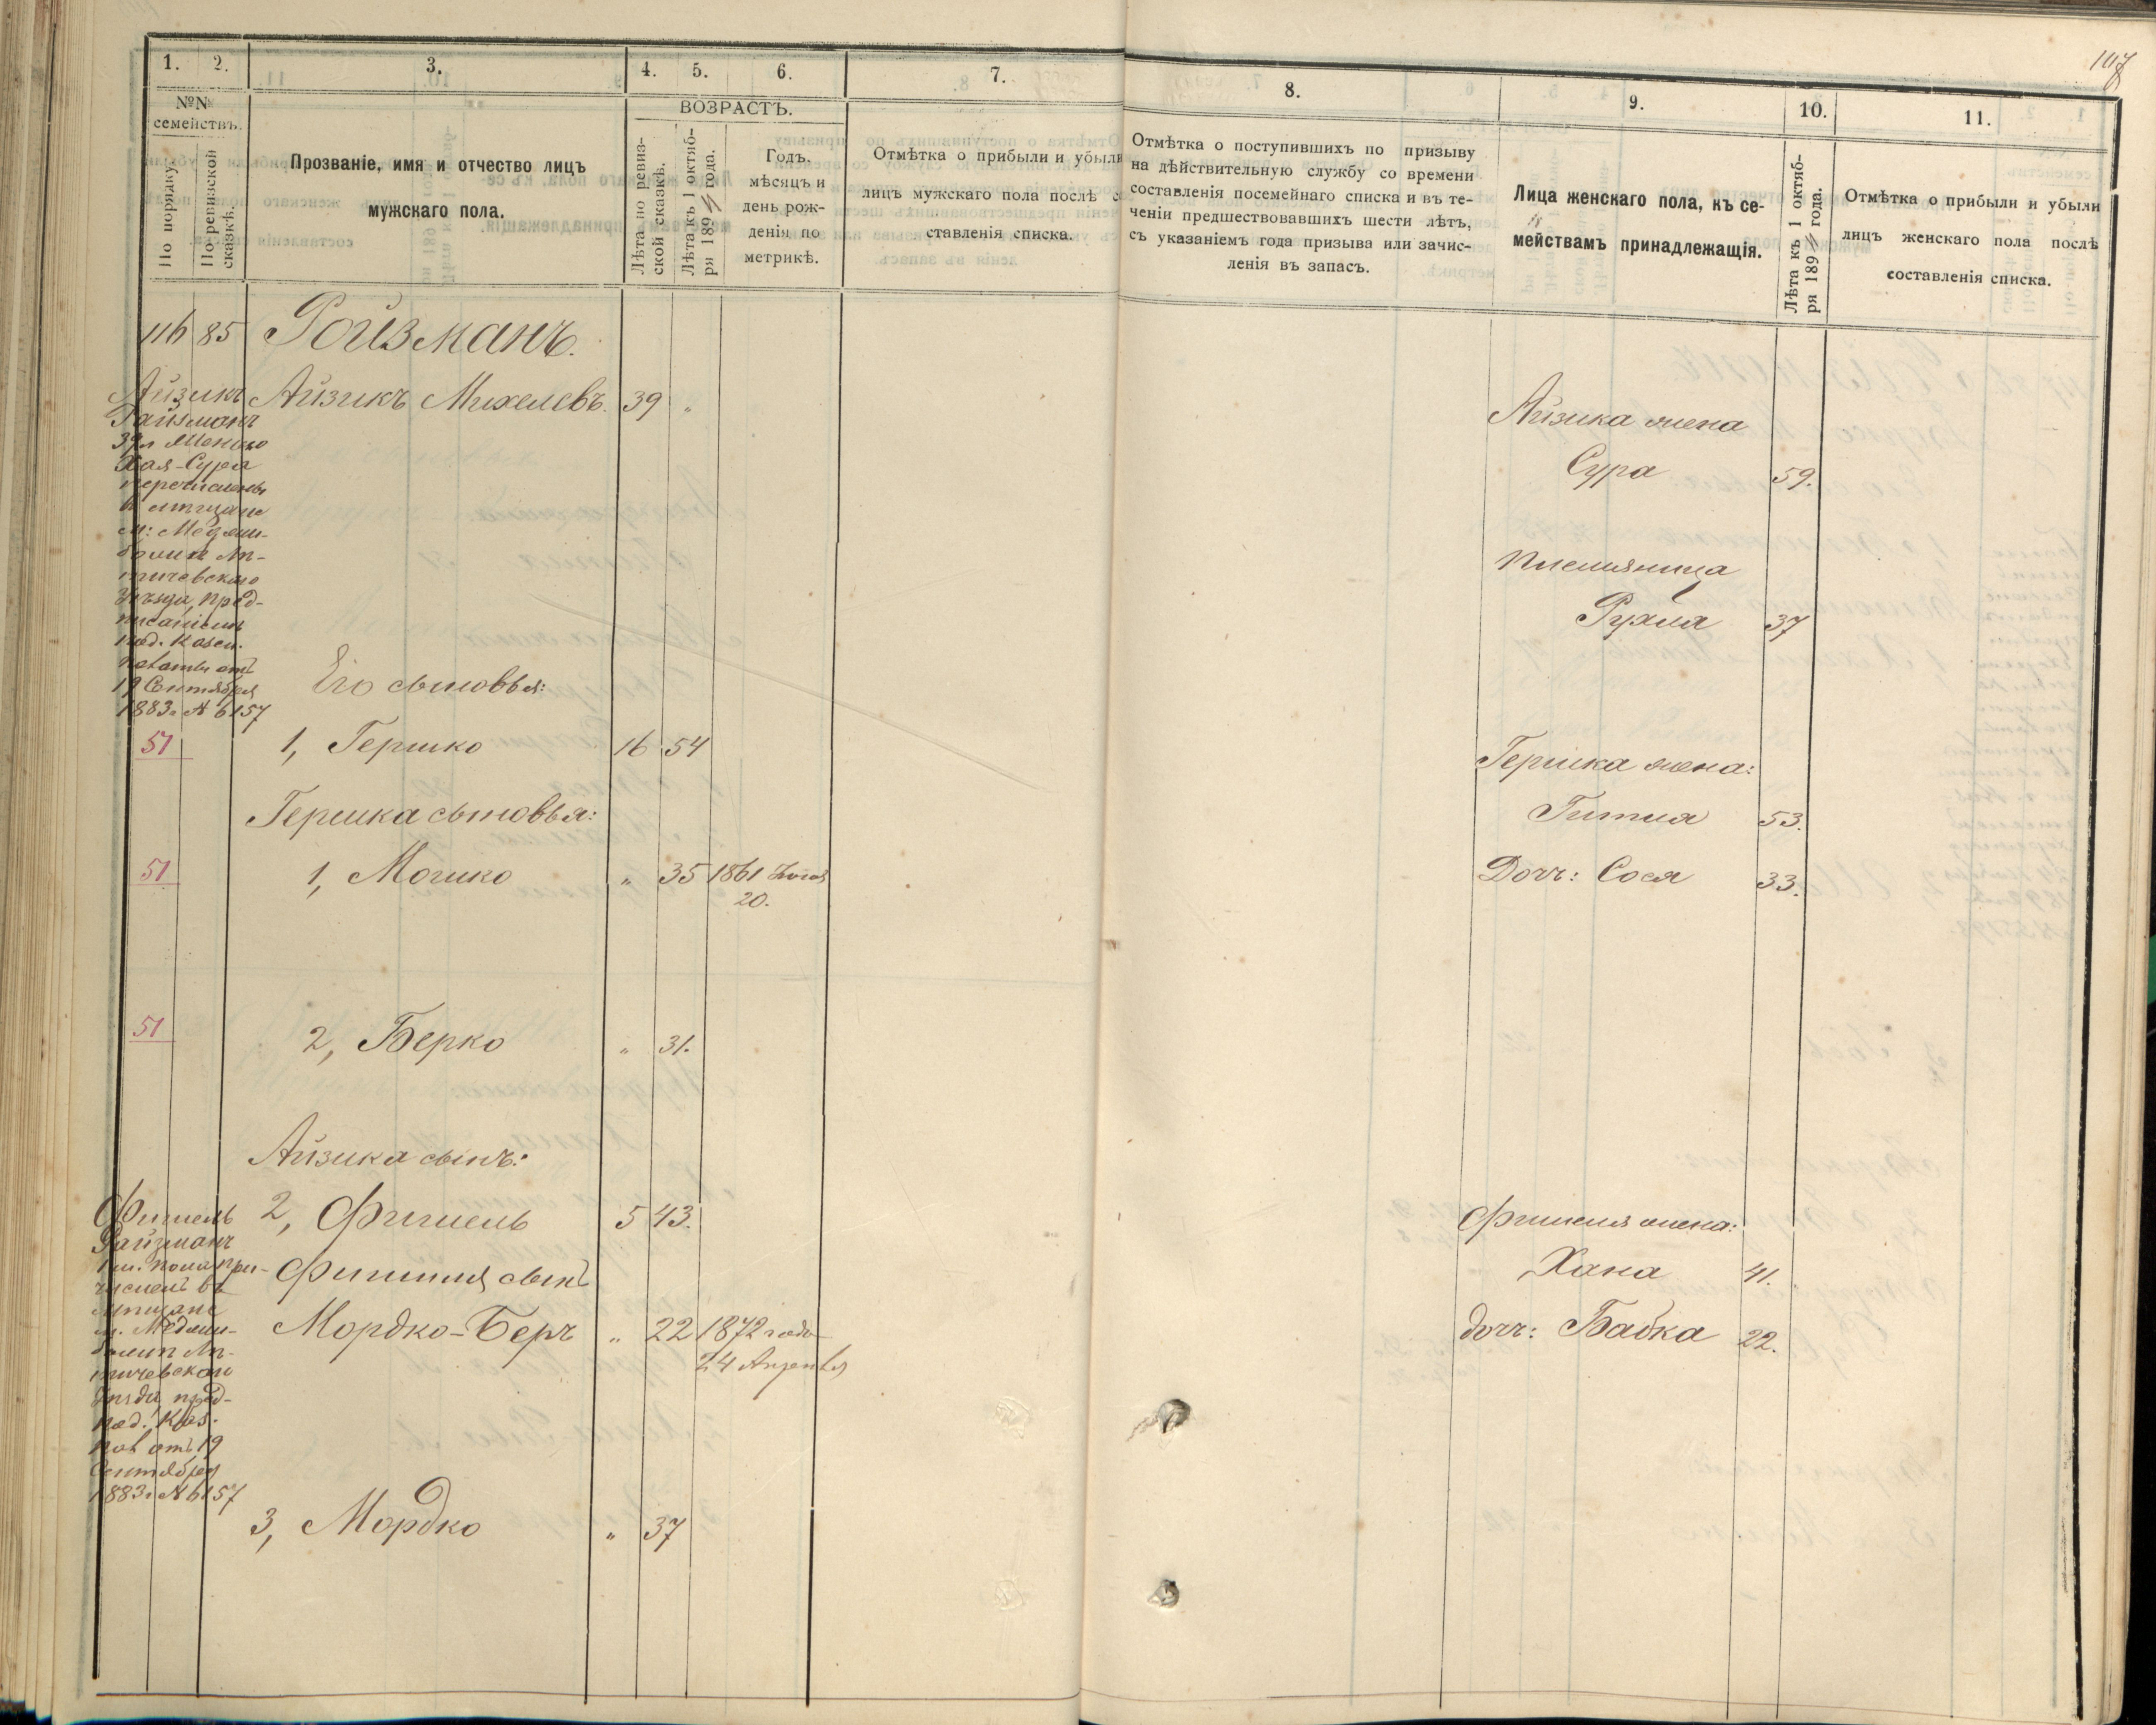 107
1. 2. 3. 4. 5. 6. 7.
№№ семействъ.
По порядку.
По ревизской сказкѣ.
Прозваніе, имя и отчество лицъ
мужскаго пола.
ВОЗРАСТЪ.
Лѣта по ревиз-
ской сказкѣ.
Лѣта къ 1 октяб-
ря 189 года.
Годъ,
мѣсяцъ и
день рож-
денія по
метрикѣ.
Отмѣтка о прибыли и убыли
лицъ мужскаго пола послѣ со
ставленія списка.
8. 9. 10. 11.
Отмѣтка о поступившихъ по призыву
на дѣйствительную службу со времени
составленія посемейнаго списка и въ те-
ченіи предшествовавшихъ шести лѣтъ,
съ указаніемъ года призыва или зачис-
ленія въ запасъ.
Лица женскаго пола, къ се-
мействамъ принадлежащія.
Лѣта къ 1 октяб-
ря 189 года.
Отмѣтка о прибыли и убыли
лицъ женскаго пола послѣ
составленія списка.
116 85 Ройзманъ.
Айзикъ Михелевъ. 39 "
Айзикъ
Райзманъ
39 л женою
Хая-Сура
перечислены
в мѣщане
м: Меджи-
божъ Ли-
тичевского
уѣзда пред-
писаніемъ
под. Казен.
палаты отъ
19 Сентября
1883 г № 6157
Его сыновья:
51 1, Гершко 16 54
Гершка сыновья:
51 1, Мошко " 35 1861
20.
51 2, Берко " 31.
Айзика сынъ:
2, Фишель 5 43.
Фишеля сынъ
Мордко-Беръ " 22 1872 года
24 Апреля
Фишель
Райзманъ
причисленъ въ
мѣщане
м. Меджи-
божъ Ли-
тичевского
уѣзда пред-
под. Каз.
пал отъ 19
Сентября
1883 г № 6157
3, Мордко " 37
Айзика жена
Сура 59.
племянница
Рухля 37
Гершка жена:
Гитля 53.
Доч: Сося 33.
Фишеля жена:
Хана 41.
доч: Бабка 22.